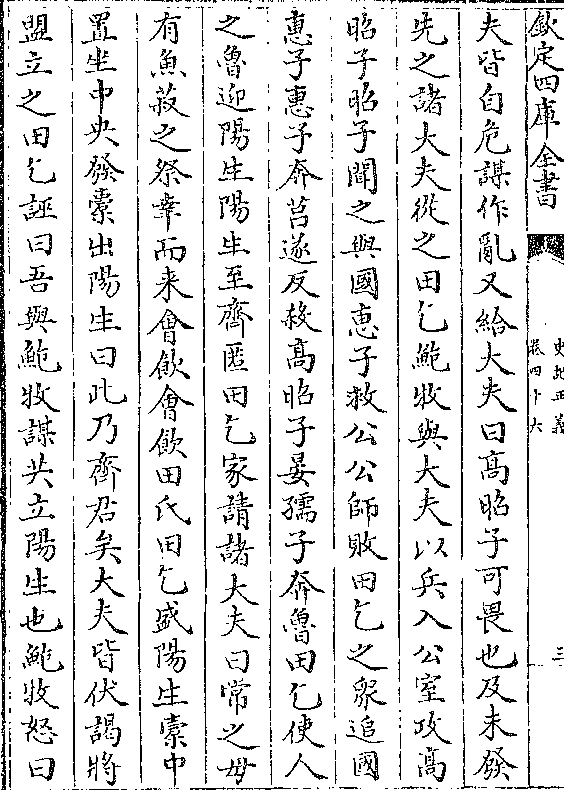 欽定四庫全書
史記正義
卷四十六
三
夫皆自危謀作亂又紿大夫曰髙昭子可畏也及未發
先之諸大夫從之田乞鮑牧與大夫以兵入公室攻髙
昭子昭子聞之與國惠子救公公師敗田乞之衆追國
惠子惠子奔莒遂反殺髙昭子晏孺子奔魯田乞使人
之魯迎陽生陽生至齊匿田乞家請諸大夫曰常之母
有魚菽之祭幸而来會飲會飲田氏田乞盛陽生橐中
置坐中央發橐出陽生曰此乃齊君矣大夫皆伏謁將
盟立之田乞誣曰吾與鮑牧謀共立陽生也鮑牧怒曰